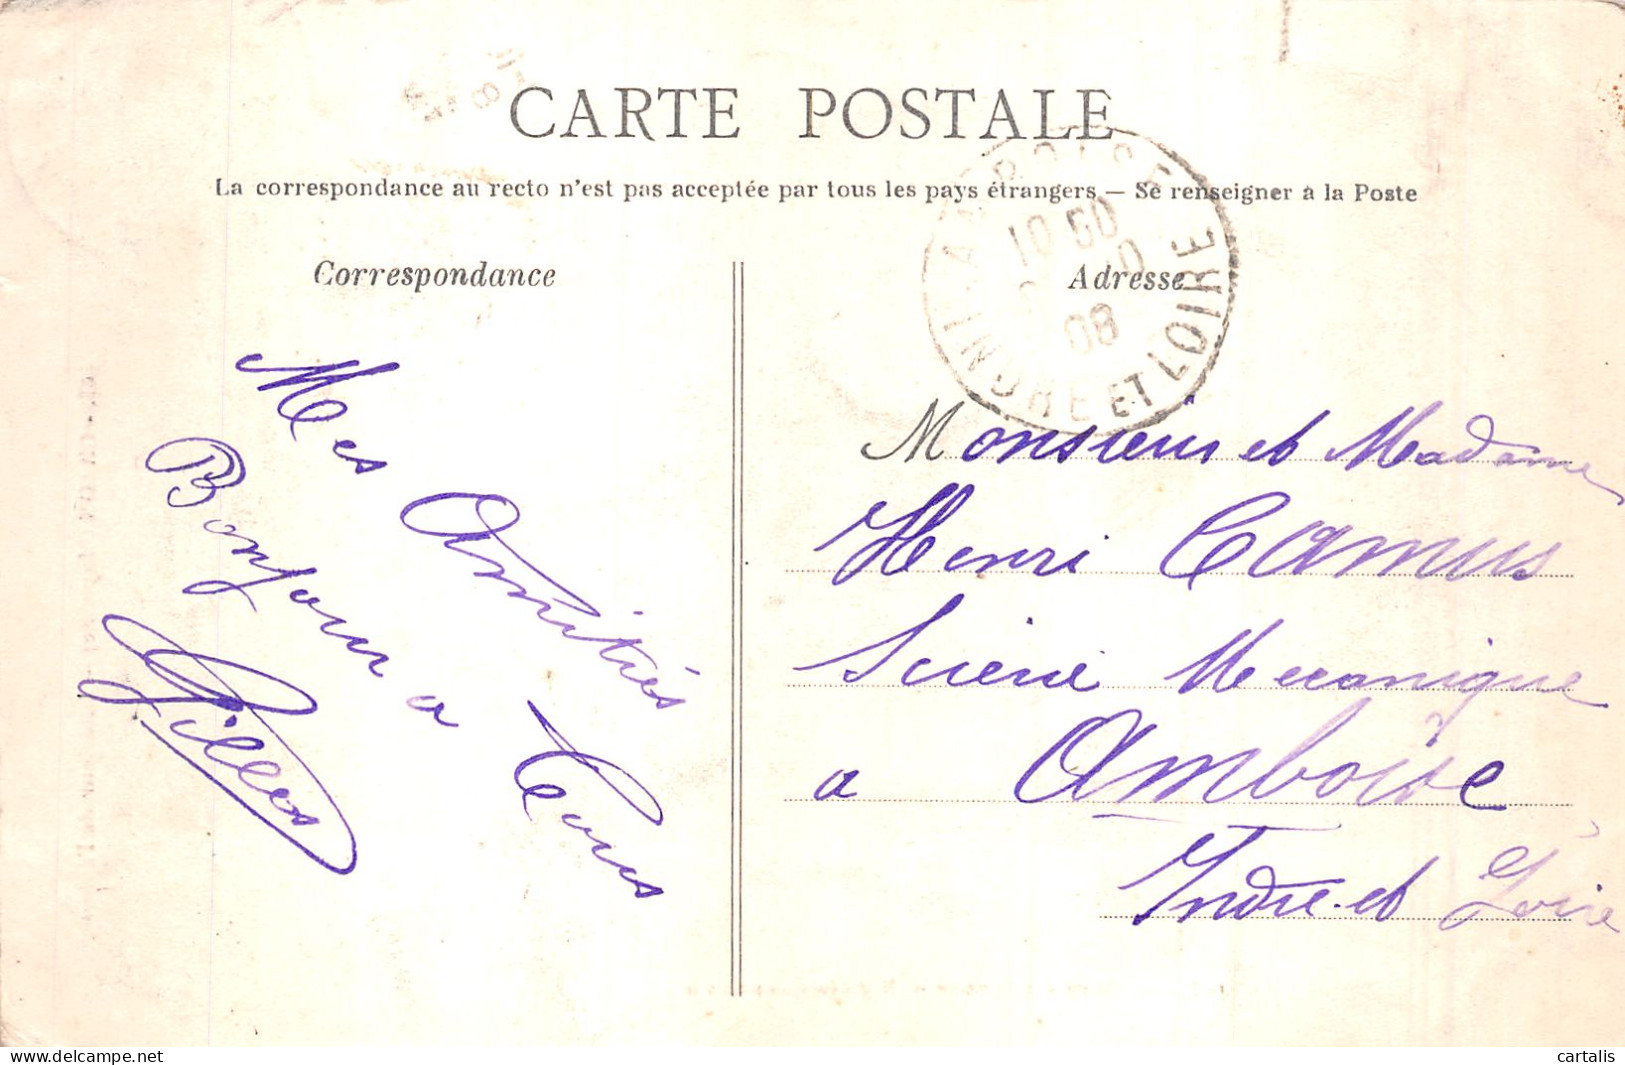 CARTE POSTALE
La correspondance au recto n'est pas acceptée par tous les pays étrangers — Se renseigner à la Poste
Correspondance
Mes Amitiés
Bonjour a Tous
Gilles
Adresse
AMBOISE
10 50
08
INDRE ET LOIRE
Monsieur et Madame
Henri Camus
Scierie Mecanique
a Amboise
Indre-et Loire
https://www.delcampe.net
cartalis